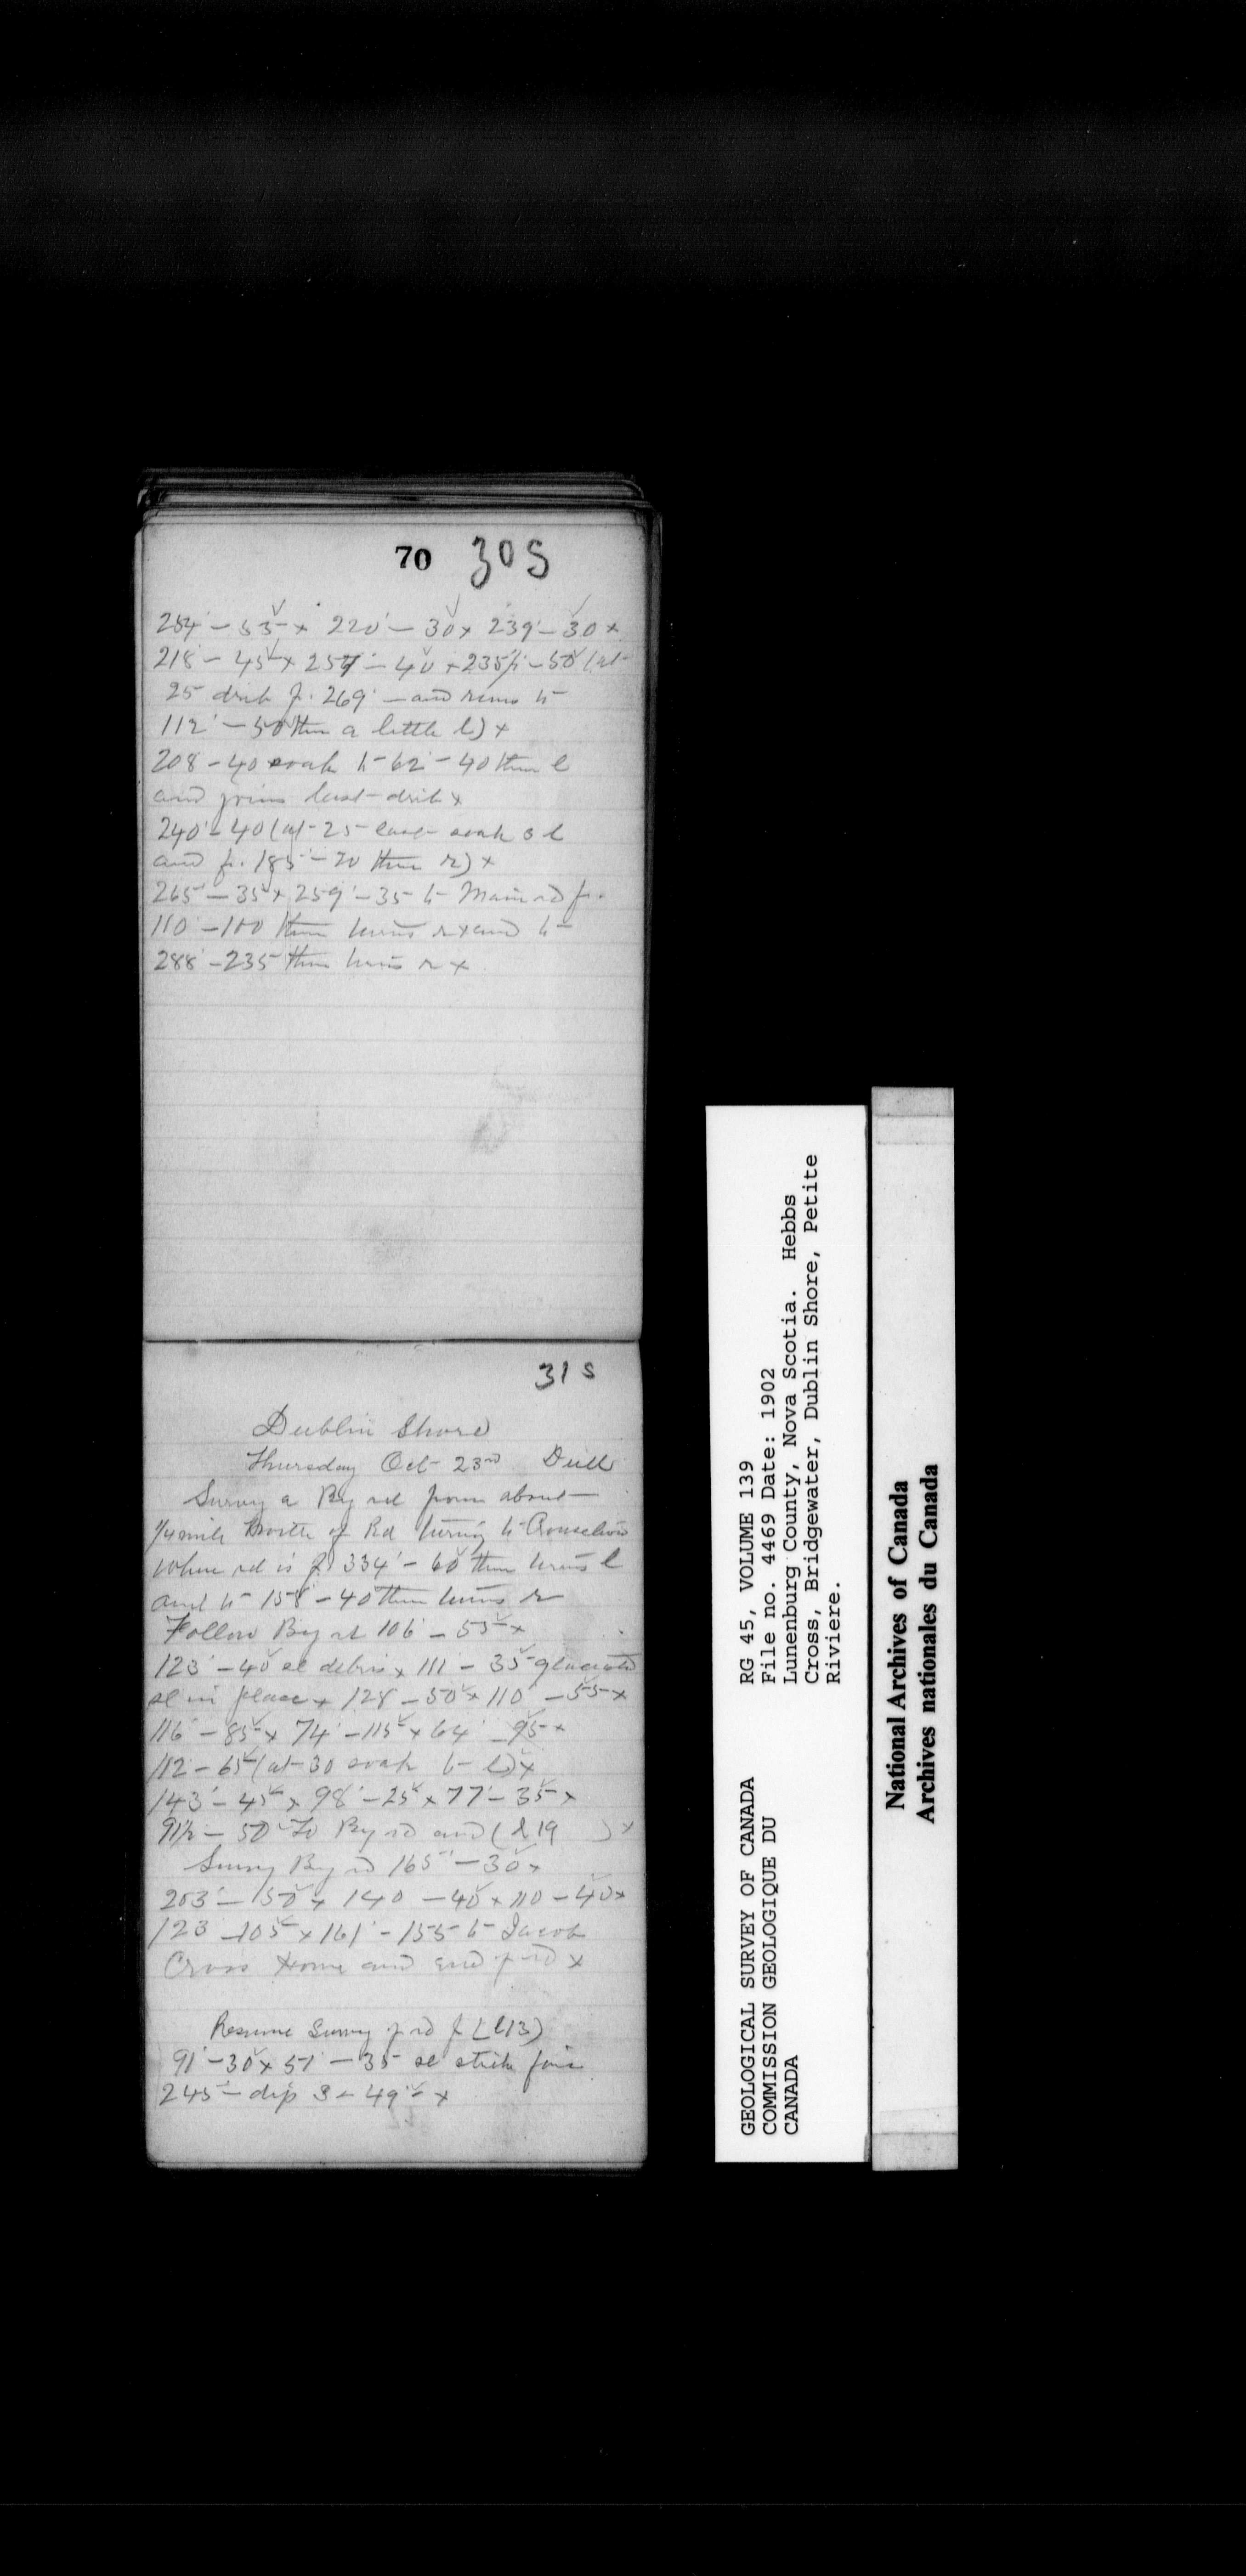 70 30S
284' - 55 x 220' - 30 x 239' - 30 x
218' - 45 x 257' - 40 x 235½ - 50 (at
25 drib f. 269' - and runs to
112' - 50 then a little l) x
208 - 40 soak to 62' - 40 then l
and joins last drib x
240' - 40 (at 25 last soak s l
and f. 185' - 20 then r) x
265' - 35 x 259' - 35 to Main rd f.
110' - 100 then turns r x and to
288' - 235 then turns r x
31 S
Dublin Shore
Thursday Oct 23rd Dull
Survey a By rd from about
¼ mile North of Rd turning to
When rd is f. 334' - 60 then turns l
and to 158' - 40 then turns r
Follow By rd 106' - 55 x
123' - 40 sl debris x 111 - 35 glaciated
sl in place x 128 - 50 x 110' - 55 x
116' - 85 x 74' - 115 x 64' - 95 x
112 - 65 (at 30 soak to l) x
143' - 45 x 98' - 25 x 77' - 35 x
91½ - 50 To By rd and (l 19 ) x
Survey By rd 165' - 30 x
203' - 150 x 140 - 40 x 110 - 40 x
123 - 105 x 161' - 155 to Jacob
Cross Home and end of rd x
Resume Survey of rd f (l 13)
91' - 30 x 51' - 35 sl strike fair
245' - dip S - 49° - x
GEOLOGICAL SURVEY OF CANADA RG 45, VOLUME 139
COMMISSION GEOLOGIQUE DU File no. 4469 Date: 1902
CANADA Lunenburg County, Nova Scotia. Hebbs
Cross, Bridgewater, Dublin Shore, Petite
Riviere.
National Archives of Canada
Archives nationales du Canada